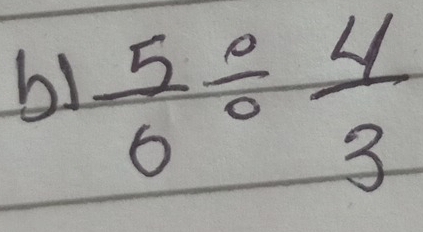 b) 5/6 ÷ 4/3